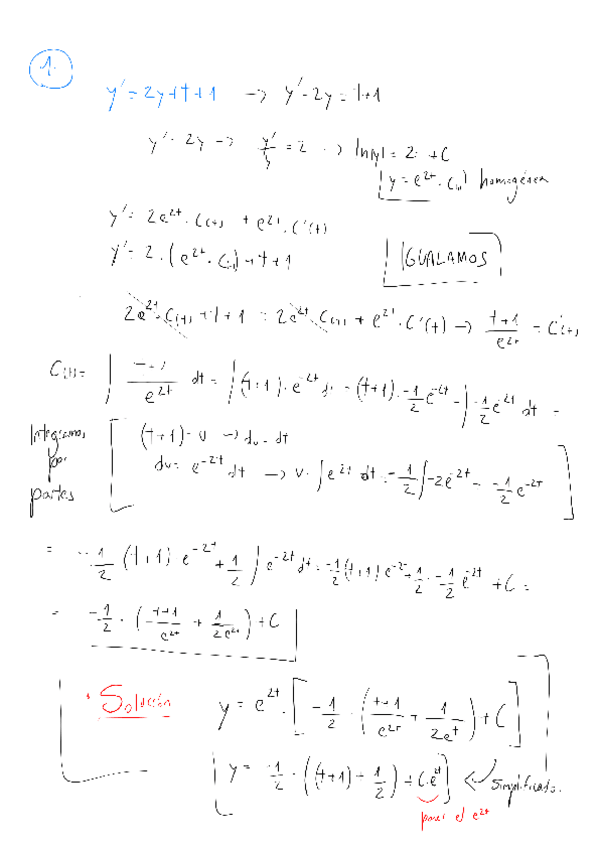 1.
y' = 2y + t + 1 -> y' - 2y = t + 1
y' = 2y -> y'/y = 2 -> ln|y| = 2t + C
y = e^{2t} · C(t) homogénea
y' = 2e^{2t} · C(t) + e^{2t} · C'(t)
y' = 2 · (e^{2t} · C(t)) + t + 1
IGUALAMOS
2e^{2t} · C(t) + t + 1 = 2e^{2t} C(t) + e^{2t} · C'(t) -> (t+1)/e^{2t} = C'(t)
C(t) = ∫ /e^{2t} dt = ∫ (t+1) · e^{-2t} dt = (t+1) · -1/2 e^{-2t} - ∫ -1/2 e^{-2t} dt =
Integramos por partes
(t+1) = u -> du = dt
dv = e^{-2t} dt -> v = ∫ e^{-2t} dt = -1/2 ∫ -2e^{-2t} = -1/2 e^{-2t}
= -1/2 (t+1) e^{-2t} + 1/2 ∫ e^{-2t} dt = -1/2 (t+1) e^{-2t} + 1/2 · -1/2 e^{-2t} + C =
= -1/2 · ((t+1)/e^{2t} + 1/2e^{2t}) + C
* Solución
y = e^{2t} · [-1/2 · ((t+1)/e^{2t} + 1/2e^{t}) + C]
y = -1/2 · ((t+1) + 1/2) + C·e^{2t} <- Simplificado.
poner el e^{2t}